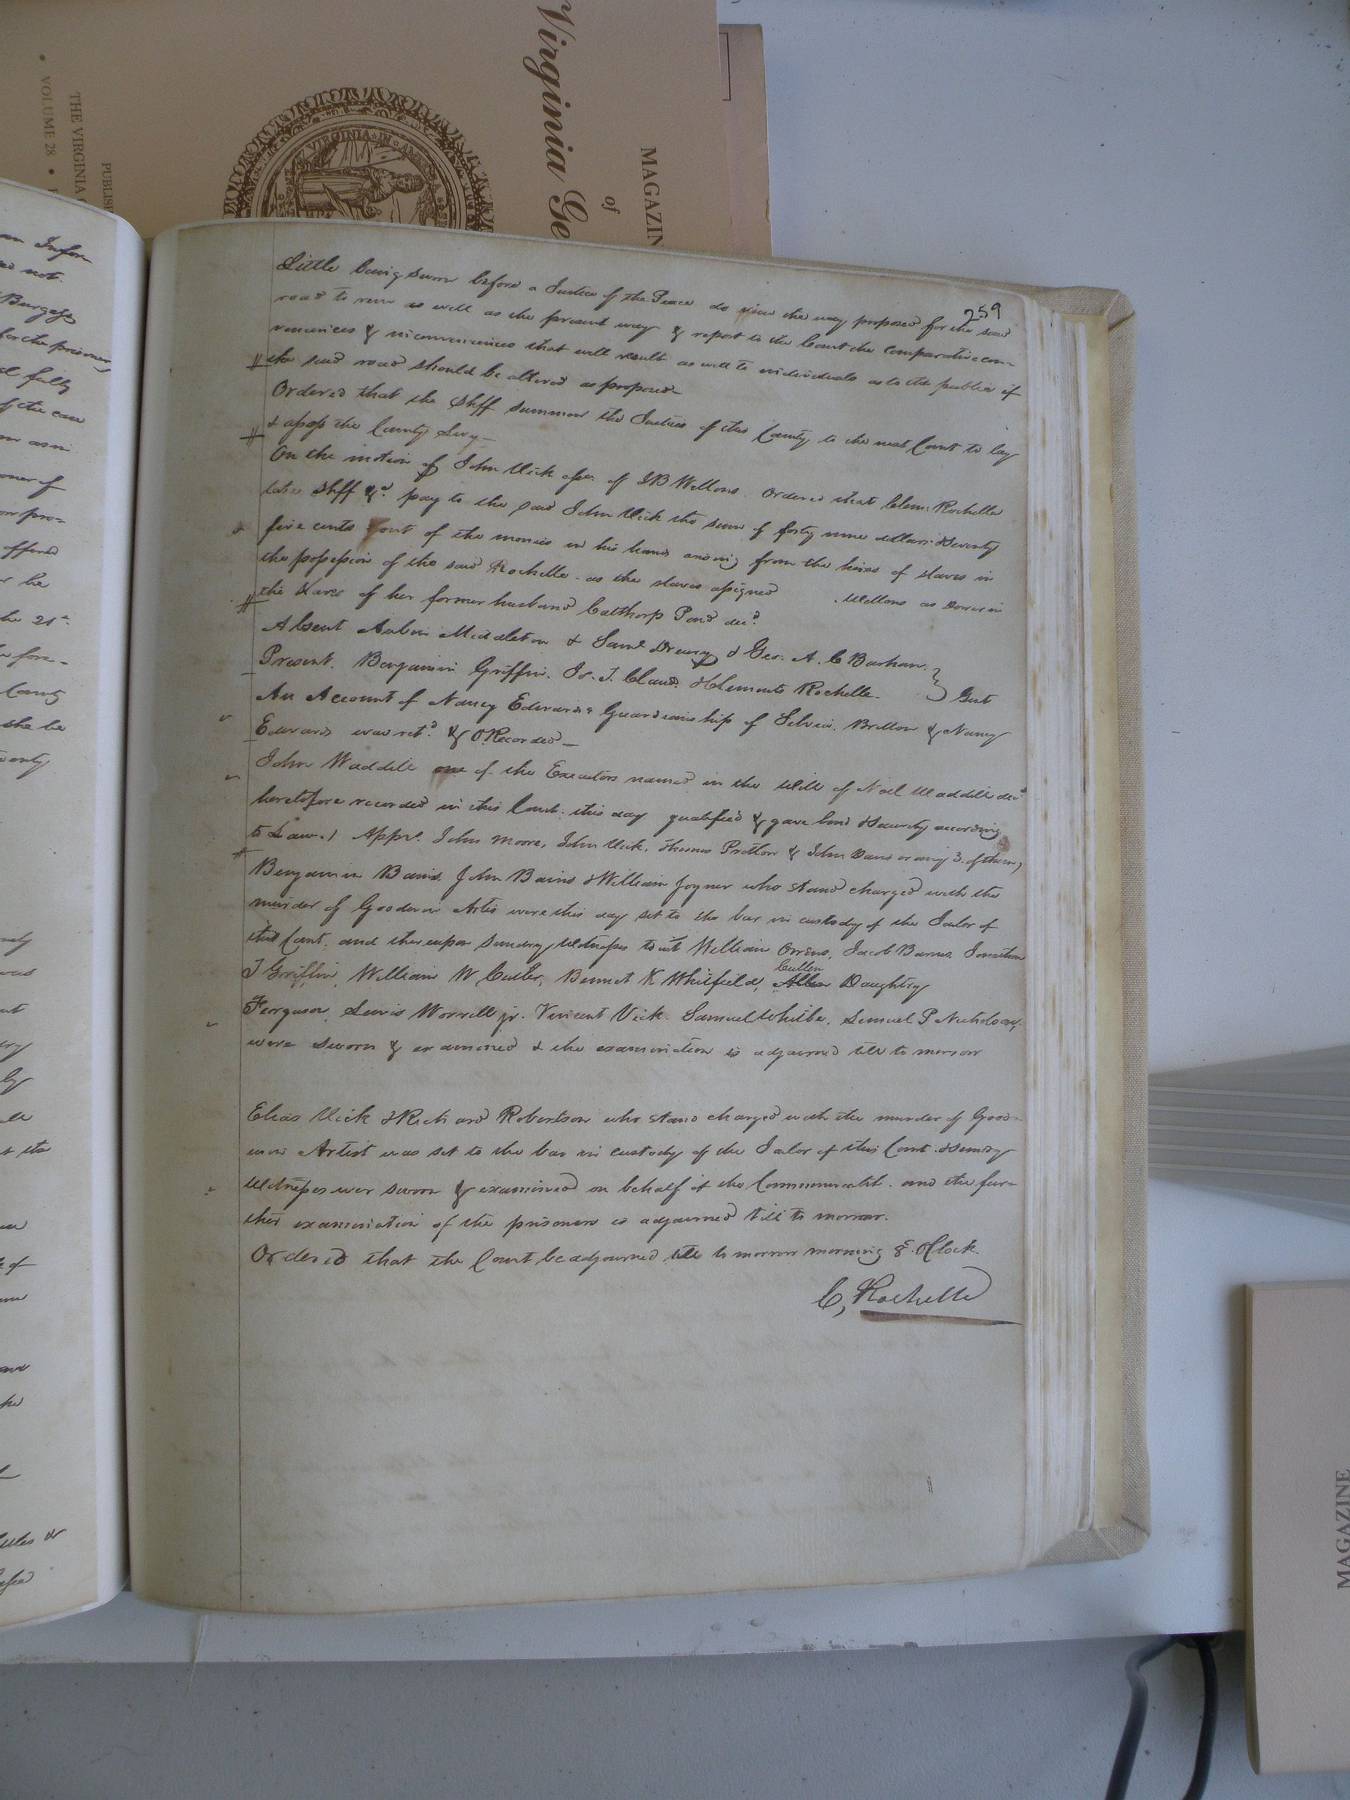 Virginia Ge
of
MAGAZIN
PUBLIS
THE VIRGINIA
• VOLUME 28 •
VIRGINIA
259
Little being sworn before a Justice of the Peace do view the way proposed for the said
road to run as well as the present way & report to the Court the comparative con-
veniences & inconveniences that will result as well to individuals as to the publick if
the said road should be altered as proposed
Ordered that the Shff summon the Justices of this County to the next Court to lay
& assess the County Levy
On the motion of John Vick of J B Wellons Ordered that Clem: Rochelle
late Shff &c. pay to the said John Vick the sum of forty nine dollars & Seventy
five cents out of the monies in his hands arising from the hires of slaves in
the possession of the said Rochelle as the slaves assigned Wellons as Dower in
the slaves of her former husband Calthorp Pond decd.
Absent Aulvin Middleton & Saml Drewry & Geo. A. C Barham
Present. Benjamin Griffin. J. T. Claud. & Clements Rochelle. } Gent
An Account of Nancy Edwards Guardianship of Silvia, Britton & Nancy
Edwards was retd. & O. Recorded
John Waddill one of the Executors named in the Will of Noel Waddill decd
heretofore recorded in this Court this day qualified & gave bond & Security according
to Law. / Apprs John Moore, John Vick, Thomas Pretlow & John Davis or any 3. of them /
Benjamin Bains John Bains & William Joyner who stand charged with the
murder of Goodwin Artis were this day set to the bar in custody of the Jailor of
this Court, and thereupon sundry Witnesses towit William Owens, Jacob Barnes Jonathan
T Griffin, William W Cutler, Bennet K Whitfield, Allen Daughtry
Cullen
Ferguson, Lewis Worrell jr. Vincent Vick. Samuel White, Lemuel P Nicholson,
were sworn & examined & the examination is adjourned till to morrow
Elias Vick & Richard Robertson who stand charged with the murder of Good-
win Artist was set to the bar in custody of the Jailor of this Court & Sundry
Witnesses wer sworn & examined on behalf of the Commonwealth. and the fur-
ther examination of the prisoners is adjourned till to morrow.
Ordered that the Court be adjourned till to morrow morning 8. OClock
C, Rochelle
MAGAZINE